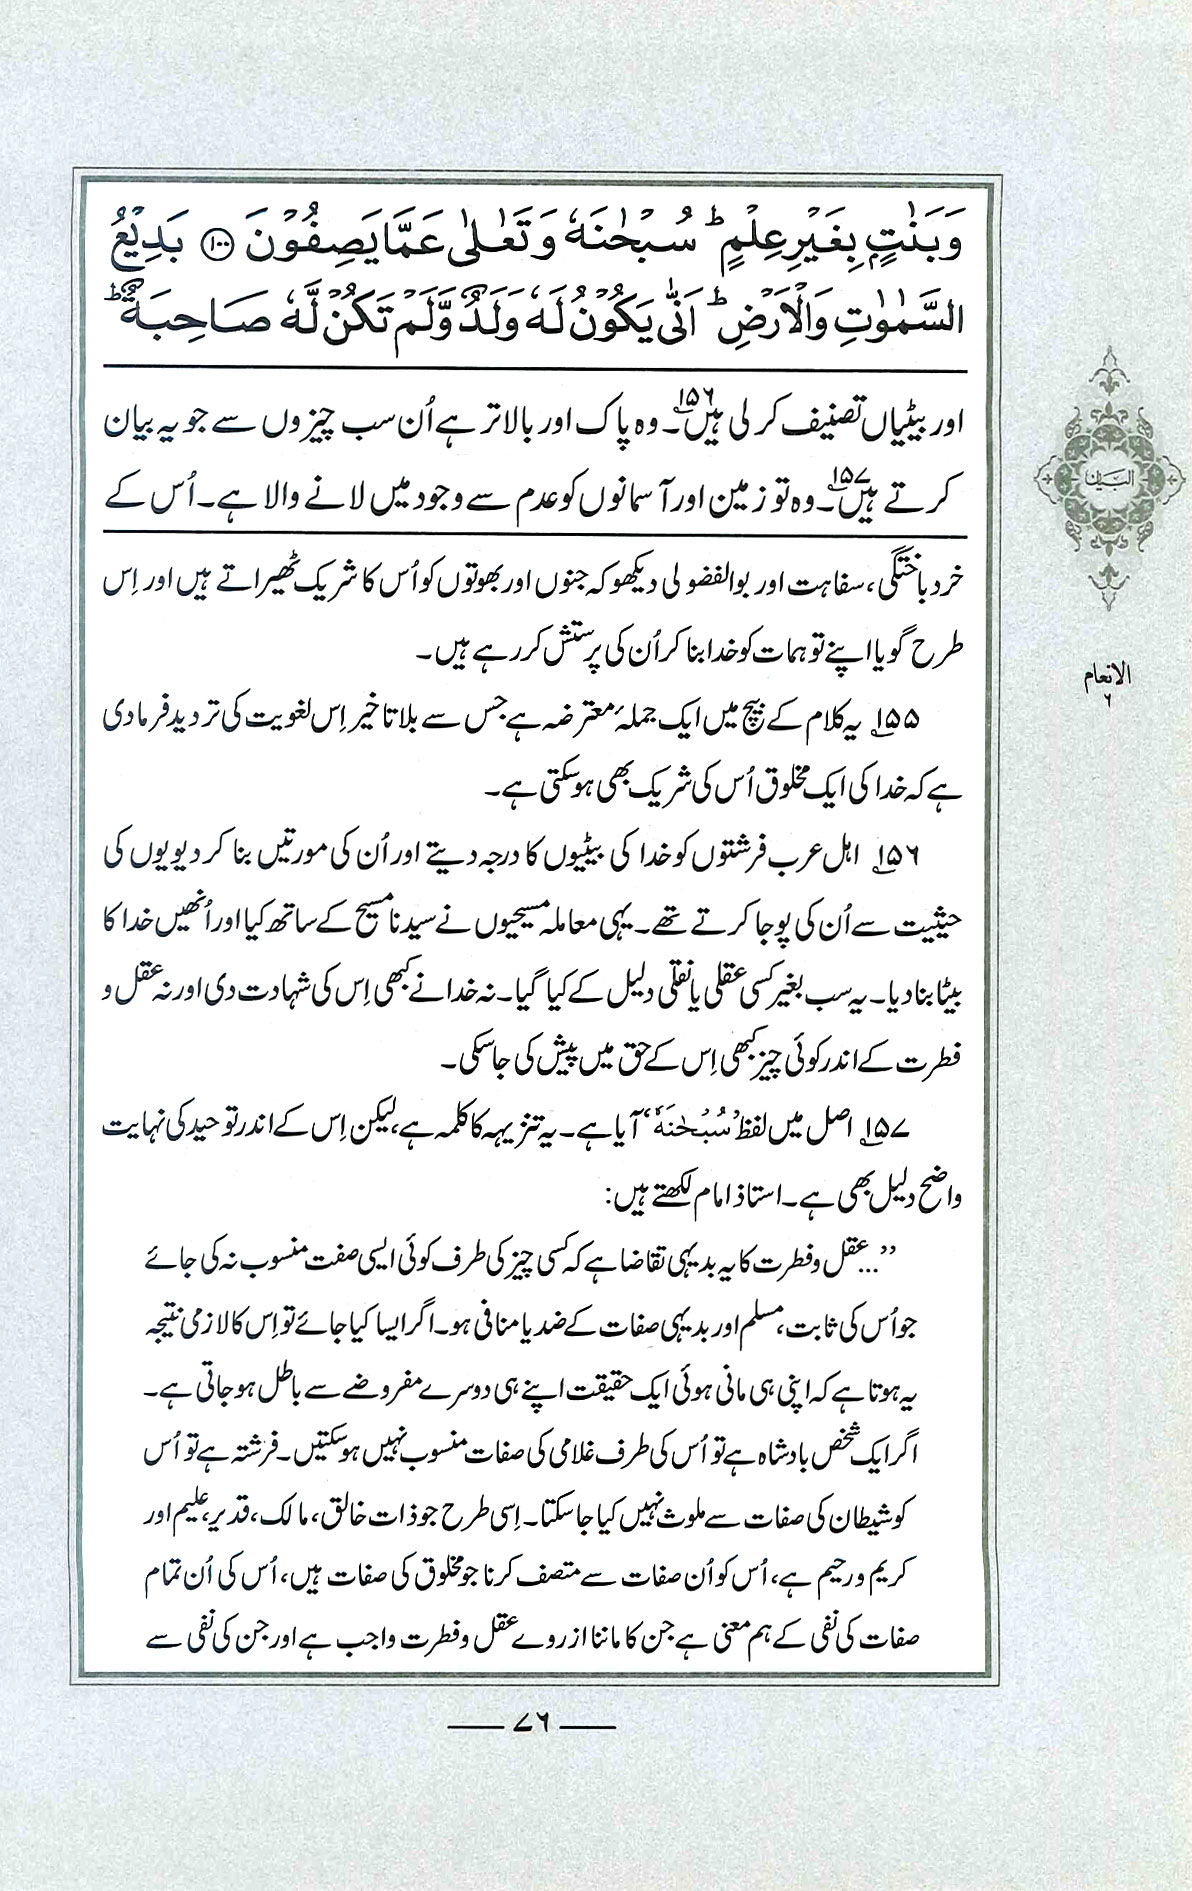 وَبَنٰتٍۭ بِغَيْرِ عِلْمٍ ؕ سُبْحٰنَهٗ وَ تَعٰلٰى عَمَّا يَصِفُوْنَ ۝۱۰۰ بَدِيْعُ
السَّمٰوٰتِ وَالْاَرْضِ ؕ اَنّٰى يَكُوْنُ لَهٗ وَلَدٌ وَّلَمْ تَكُنْ لَّهٗ صَاحِبَةٌ ؕ
اور بیٹیاں تصنیف کر لی ہیں۔۱۵۶ وہ پاک اور بالاتر ہے اُن سب چیزوں سے جو یہ بیان
کرتے ہیں۔۱۵۷ وہ تو زمین اور آسمانوں کو عدم سے وجود میں لانے والا ہے۔ اُس کے
خرد باختگی، سفاہت اور بوالفضولی دیکھو کہ جنوں اور بھوتوں کو اُس کا شریک ٹھیراتے ہیں اور اِس
طرح گویا اپنے توہمات کو خدا بنا کر اُن کی پرستش کر رہے ہیں۔
۱۵۵ یہ کلام کے بیچ میں ایک جملۂ معترضہ ہے جس سے بلا تاخیر اِس لغویت کی تردید فرما دی
ہے کہ خدا کی ایک مخلوق اُس کی شریک بھی ہو سکتی ہے۔
۱۵۶ اہل عرب فرشتوں کو خدا کی بیٹیوں کا درجہ دیتے اور اُن کی مورتیں بنا کر دیویوں کی
حیثیت سے اُن کی پوجا کرتے تھے۔ یہی معاملہ مسیحیوں نے سیدنا مسیح کے ساتھ کیا اور اُنھیں خدا کا
بیٹا بنا دیا۔ یہ سب بغیر کسی عقلی یا نقلی دلیل کے کیا گیا۔ نہ خدا نے کبھی اِس کی شہادت دی اور نہ عقل و
فطرت کے اندر کوئی چیز کبھی اِس کے حق میں پیش کی جا سکی۔
۱۵۷ اصل میں لفظ ’سُبْحٰنَهٗ‘ آیا ہے۔ یہ تنزیہہ کا کلمہ ہے، لیکن اِس کے اندر توحید کی نہایت
واضح دلیل بھی ہے۔ استاذ امام لکھتے ہیں:
’’...عقل و فطرت کا یہ بدیہی تقاضا ہے کہ کسی چیز کی طرف کوئی ایسی صفت منسوب نہ کی جائے
جو اُس کی ثابت، مسلم اور بدیہی صفات کے ضد یا منافی ہو۔ اگر ایسا کیا جائے تو اِس کا لازمی نتیجہ
یہ ہوتا ہے کہ اپنی ہی مانی ہوئی ایک حقیقت اپنے ہی دوسرے مفروضے سے باطل ہو جاتی ہے۔
اگر ایک شخص بادشاہ ہے تو اُس کی طرف غلامی کی صفات منسوب نہیں ہو سکتیں۔ فرشتہ ہے تو اُس
کو شیطان کی صفات سے ملوث نہیں کیا جا سکتا۔ اِسی طرح جو ذات خالق، مالک، قدیر، علیم اور
کریم و رحیم ہے، اُس کو اُن صفات سے متصف کرنا جو مخلوق کی صفات ہیں، اُس کی اُن تمام
صفات کی نفی کے ہم معنی ہے جن کا ماننا از روے عقل و فطرت واجب ہے اور جن کی نفی سے
البیان
الانعام
۶
۷۶